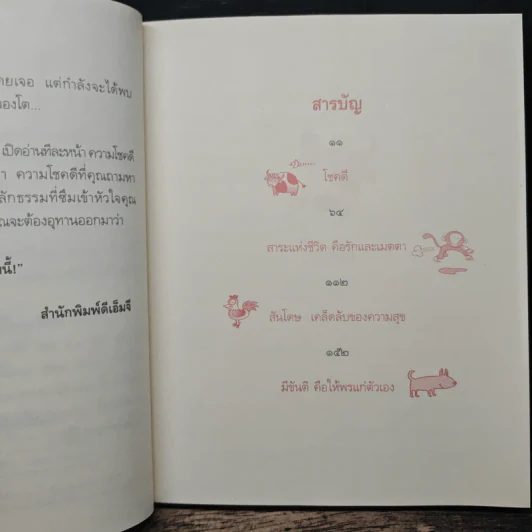 ยเจอ แต่กำลังจะได้พบ
องโต...
เปิดอ่านทีละหน้า ความโชคดี
ความโชคดีที่คุณถามหา
ลักธรรมที่ซึมเข้าหัวใจคุณ
ณจะต้องอุทานออกมาว่า
นี้!"
สำนักพิมพ์ดีเอ็มจี
สารบัญ
๑๑
โชคดี
๖๔
สาระแห่งชีวิต คือรักและเมตตา
๑๑๒
สันโดษ เคล็ดลับของความสุข
๑๕๒
มีขันติ คือให้พรแก่ตัวเอง